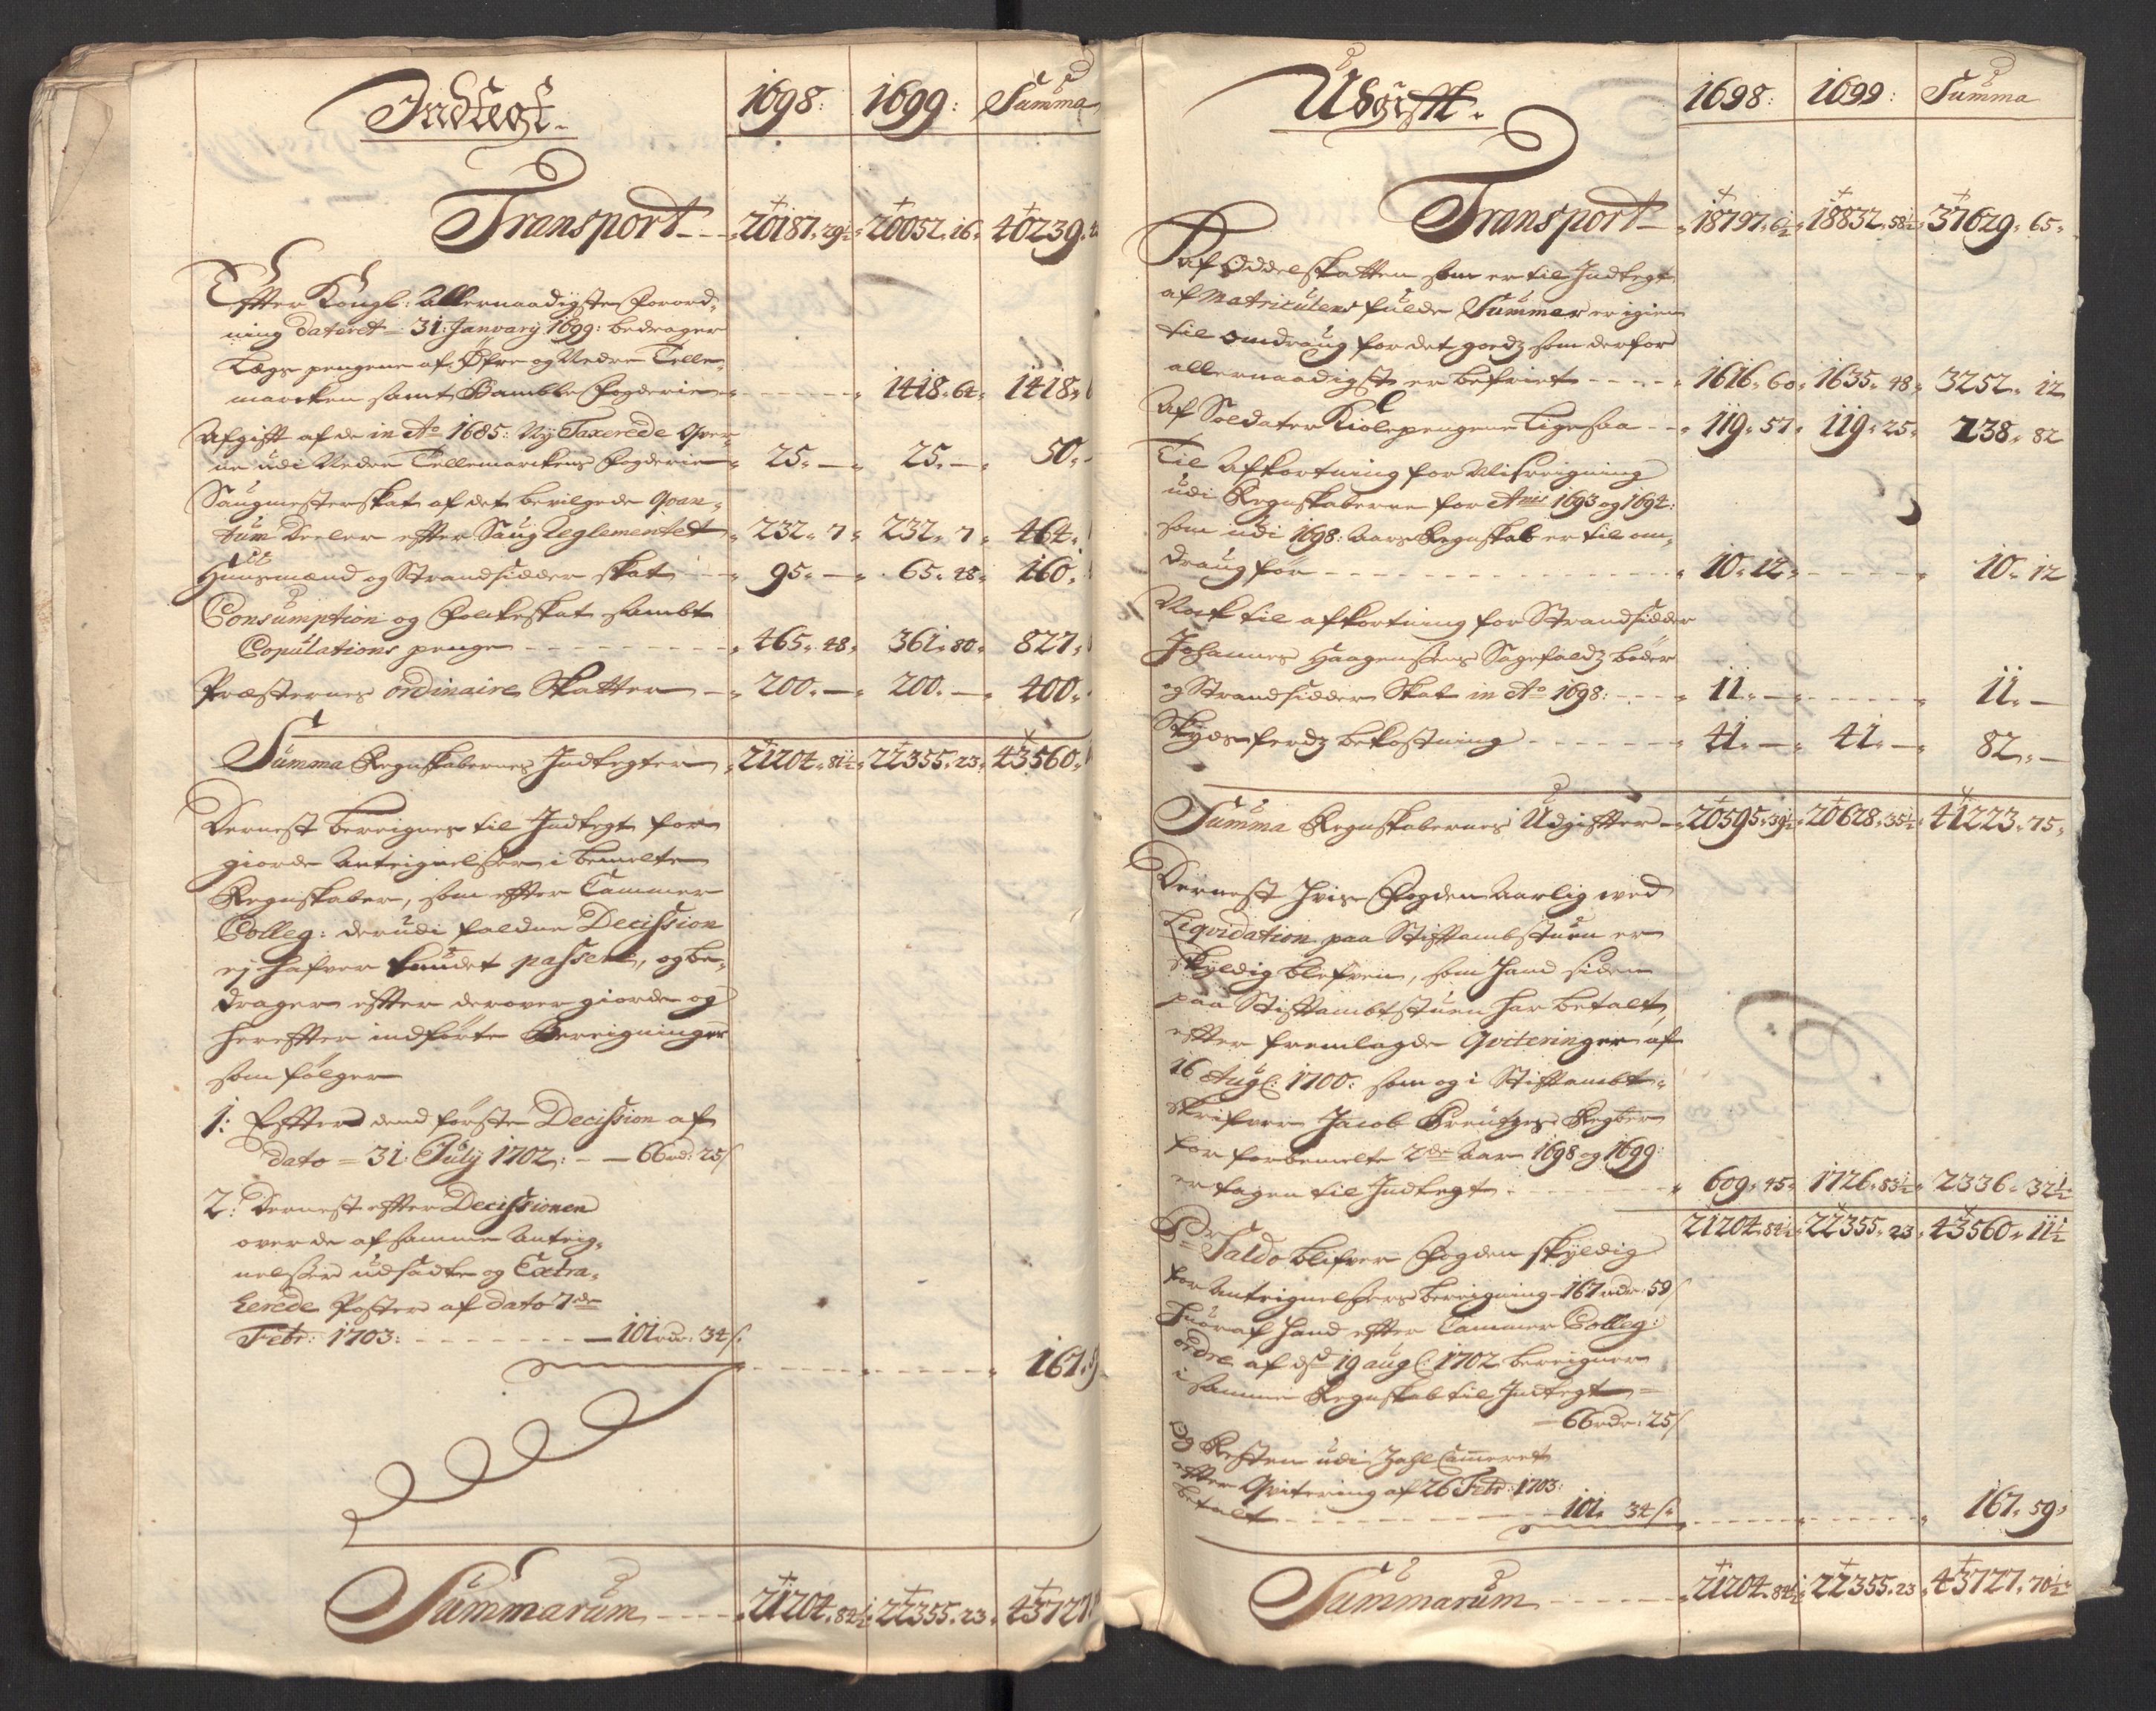 Indtegt.
1698: 1699: Summa
Transport - - 20187. 29½ 20052. 16. 40239.
Effter Kongl: Allernaadigste Forord-
ning dateret 31: January 1699: bedrager
Lægs pengene af Øfre og Nedre Telle-
marcken samt Bamble Fogderie - - - 1418. 64. 1418.
Afgift af de in Ao 1685: Ny Taxerede Qver-
ne udi Nedre Tellemarckens Fogderie 25. — 25. — 50.
Saugmesterskat af det bevilgede Qvan-
tum Deeler effter Saug Reglementet 232. 7. 232. 7. 464.
Huusmænd og Strandsidder skat 95. — 65. 48. 160.
Consumption og Folkeskat sambt
Copulations penge - - - 465. 48. 361. 80. 827.
Præsternes ordinaire Skatter 200. — 200. — 400.
Summa Regnskabernes Indtegter 21204. 84½ 22355. 23. 43560.
Dernest bereignes til Indtegt for
giorde Anteignelsser i bemelte
Regnskaber, som effter Cammer
Colleg: derudi faldne Decission
ej hafver kundet passere, og be-
drager effter derover giorde og
hereffter indførte Bereigninger
som følger
1: Effter dend første Decission af
dato 31: July 1702: - - 66 rdr: 25 s
2: Dernest effter Decissionen
over de af samme Anteig-
nelsser udsadte og Extra-
herede Poster af dato 7de
Febr: 1703: - - - 101 rdr: 34 s:
167. 59
Summarum - - - 21204. 84½ 22355. 23. 43727.
Udgifft.
1698: 1699: Summa
Transport 18797. 6½ 18832. 58½ 37629. 65.
Af Oddelskatten som er til Indtegt
af Matriculens fulde Summer er igien
til omdraug for det goedz som derfor
allernaadigst er befriet - - - 1616. 60. 1635. 48. 3252. 12
Af Soldater Kiolepengene Ligesaa - - 119. 57. 119. 25. 238. 82
Til Afkortning for Misreigning
udi Regnskaberne for Anis 1693 og 1694:
som udi 1698: Aars Regnskab er til om-
draug før - - - 10. 12. - - - 10. 12
Nock til afkortning for Strandsidder
Johannes Haagenssens Sagefaldz bøder
og Strandsidder Skat in Ao 1698: - - - 11. — - - - 11. —
Skydsferdz bekostning - - - 41. — 41. — 82. —
Summa Regnskabernes Udgiffter 20595. 39½ 20628. 35½ 41223. 75.
Dernest hvis Fogden Aarlig ved
Liqvidation paa Stiftambstuen er
skyldig blefven, som hand siden
paa Stiftambtstuen har betalt,
effter fremlagde Qviteringer af
16 Aug: 1700: som og i Stiftambt-
skrifver Jacob Kreutzes Regber
for forbemelte 2de Aar 1698 og 1699:
er tagen til Indtegt - - - 609. 45. 1726. 83½ 2336. 32½
21204. 84½ 22355. 23. 43560. 11½
Pr Saldo blifver Fogden skyldig
for Anteignelsers bereigning 167 rdr: 59 s
Huoraf hand effter Cammer Colleg:
ordre af dd 19 aug: 1702 bereigner
i samme Regnskab til Indtegt
66 rdr: 25 s
Og Resten udi Zahl Cameret
effter Qvitering af 26 Febr: 1703:
betalt - - - 101. 34 s: - - - 167. 59.
Summarum - - - 21204. 84½ 22355. 23. 43727. 70½